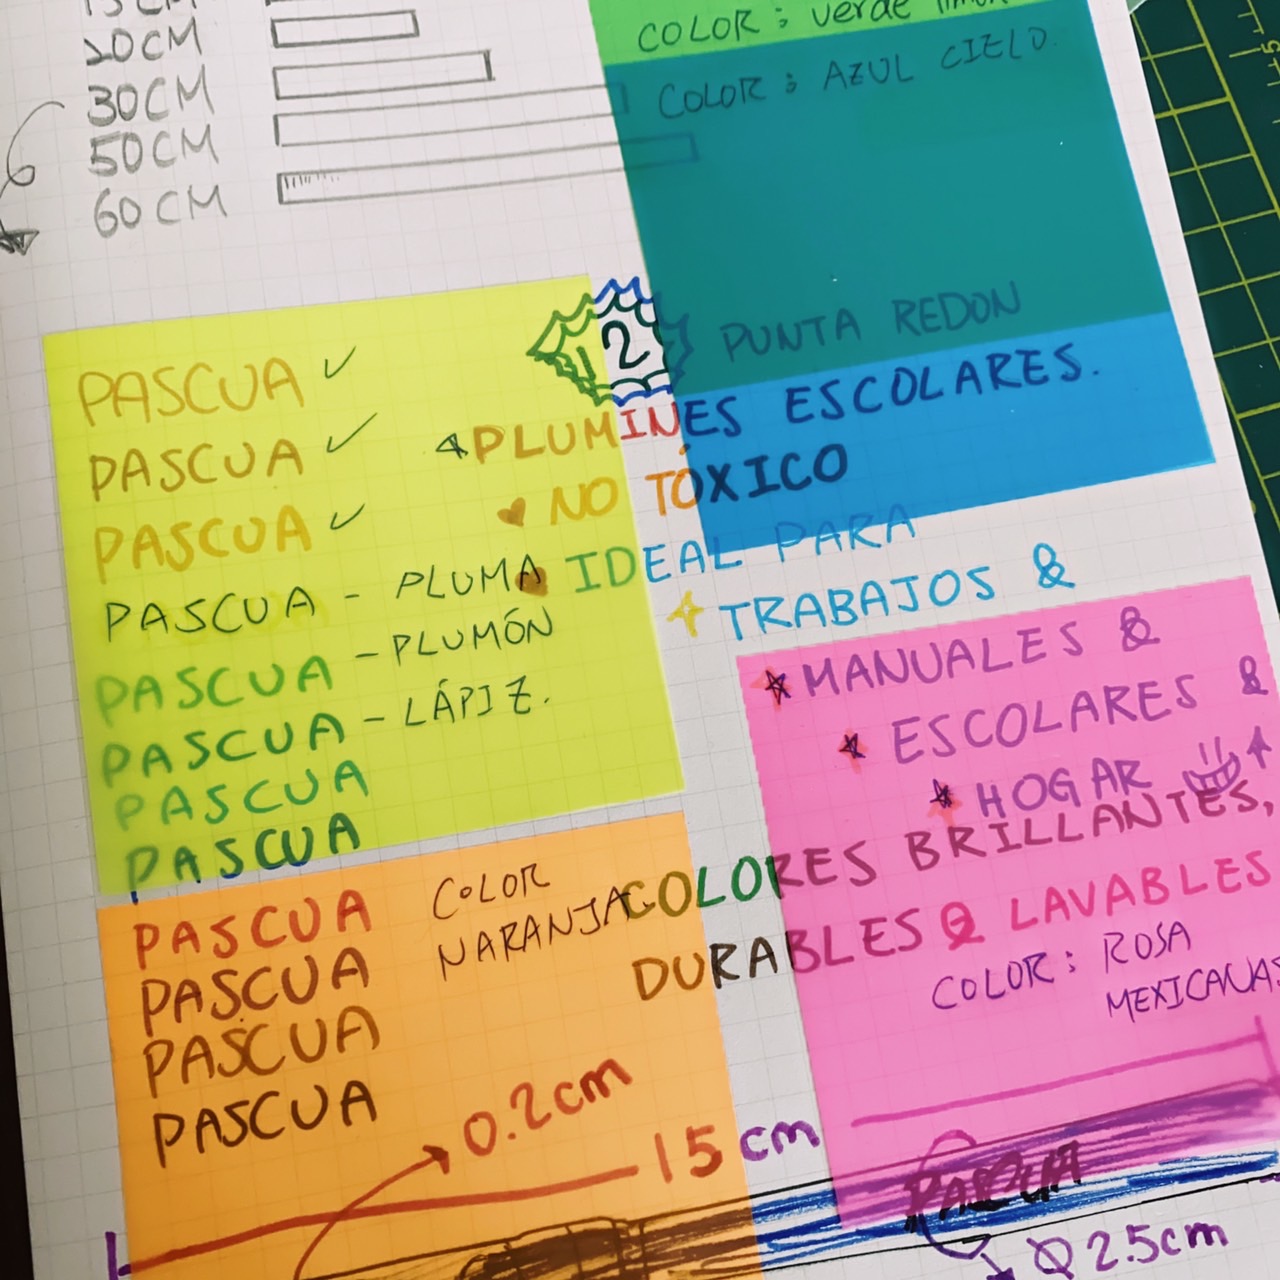 15CM
20CM
30CM
50CM
60CM
COLOR : verde limón
COLOR : AZUL CIELO.
PUNTA REDON
12
PLUMINES ESCOLARES.
NO TÓXICO
IDEAL PARA
TRABAJOS &
MANUALES &
ESCOLARES &
HOGAR
COLORES BRILLANTES,
DURABLES & LAVABLES
COLOR : ROSA
MEXICANA
PASCUA ✓
PASCUA ✓
PASCUA ✓
PASCUA - PLUMA
PASCUA - PLUMÓN
PASCUA - LÁPIZ.
PASCUA
PASCUA
PASCUA
PASCUA
PASCUA
PASCUA
COLOR
NARANJA
0.2cm
15 cm
PASCUA
Ø 2.5cm